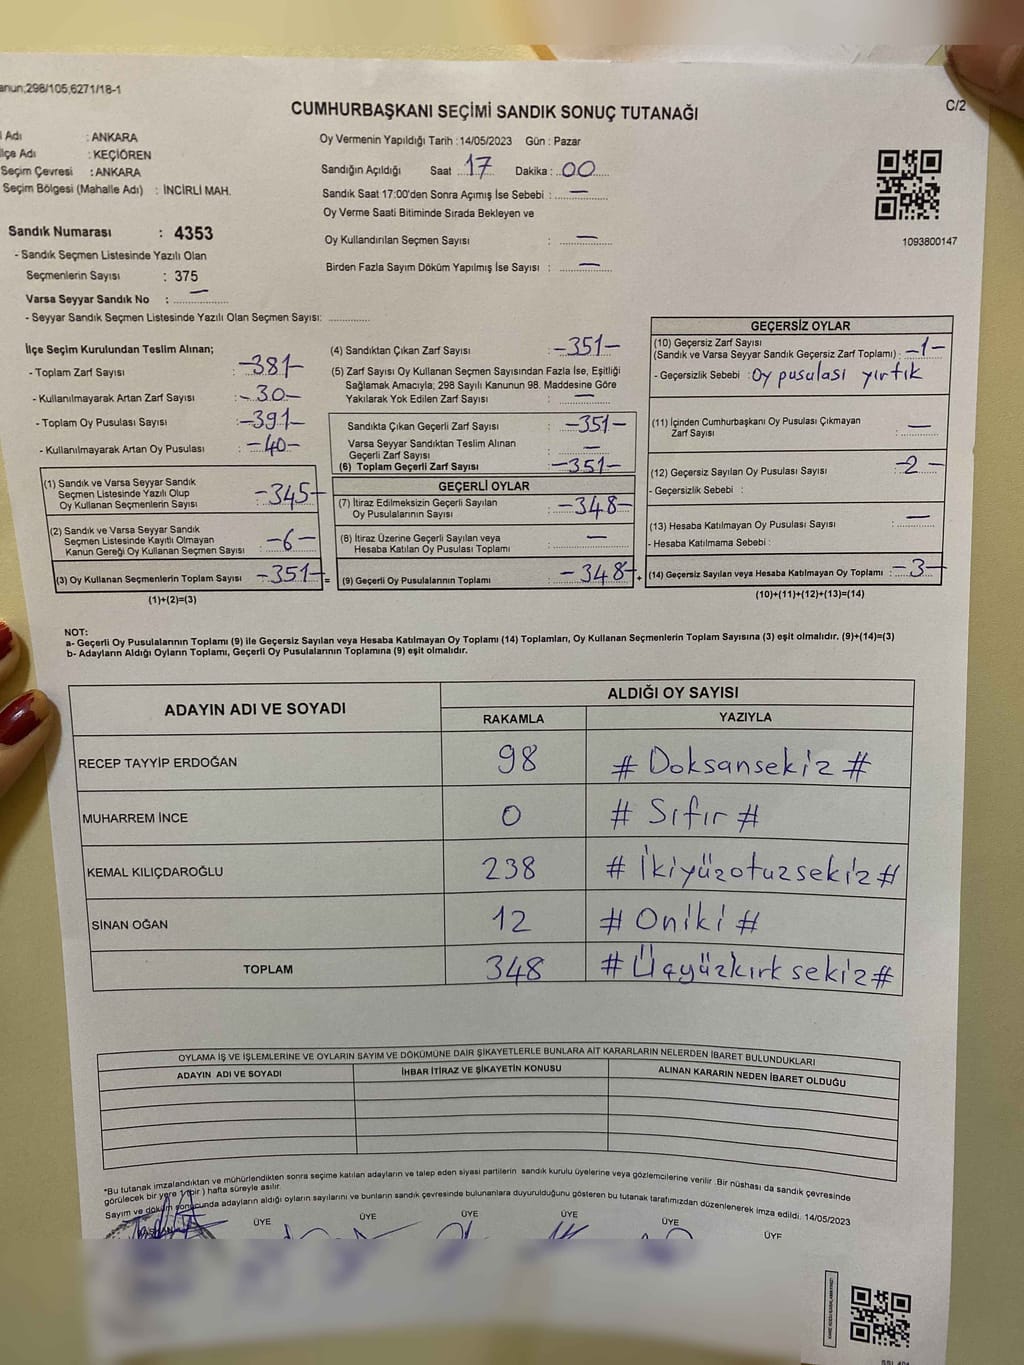 anun;298/105,6271/18-1
C/2
CUMHURBAŞKANI SEÇİMİ SANDIK SONUÇ TUTANAĞI
Adı : ANKARA
lçe Adı : KEÇİÖREN
Seçim Çevresi : ANKARA
Seçim Bölgesi (Mahalle Adı) : İNCİRLİ MAH.
Sandık Numarası : 4353
- Sandık Seçmen Listesinde Yazılı Olan
Seçmenlerin Sayısı : 375
Varsa Seyyar Sandık No : —
- Seyyar Sandık Seçmen Listesinde Yazılı Olan Seçmen Sayısı: ..............
Oy Vermenin Yapıldığı Tarih : 14/05/2023 Gün : Pazar
Sandığın Açıldığı Saat 17 Dakika : 00
Sandık Saat 17:00'den Sonra Açımış İse Sebebi : —
Oy Verme Saati Bitiminde Sırada Bekleyen ve
Oy Kullandırılan Seçmen Sayısı : —
Birden Fazla Sayım Döküm Yapılmış İse Sayısı : —
1093800147
İlçe Seçim Kurulundan Teslim Alınan;
- Toplam Zarf Sayısı : -381-
- Kullanılmayarak Artan Zarf Sayısı : -30-
- Toplam Oy Pusulası Sayısı : -391-
- Kullanılmayarak Artan Oy Pusulası : -40-
(1) Sandık ve Varsa Seyyar Sandık
Seçmen Listesinde Yazılı Olup
Oy Kullanan Seçmenlerin Sayısı -345-
(2) Sandık ve Varsa Seyyar Sandık
Seçmen Listesinde Kayıtlı Olmayan
Kanun Gereği Oy Kullanan Seçmen Sayısı -6-
(3) Oy Kullanan Seçmenlerin Toplam Sayısı -351- =
(1)+(2)=(3)
(4) Sandıktan Çıkan Zarf Sayısı : -351-
(5) Zarf Sayısı Oy Kullanan Seçmen Sayısından Fazla İse, Eşitliği
Sağlamak Amacıyla; 298 Sayılı Kanunun 98. Maddesine Göre
Yakılarak Yok Edilen Zarf Sayısı : —
Sandıkta Çıkan Geçerli Zarf Sayısı : -351-
Varsa Seyyar Sandıktan Teslim Alınan
Geçerli Zarf Sayısı : —
(6) Toplam Geçerli Zarf Sayısı : -351-
GEÇERLİ OYLAR
(7) İtiraz Edilmeksizin Geçerli Sayılan
Oy Pusulalarının Sayısı : -348-
(8) İtiraz Üzerine Geçerli Sayılan veya
Hesaba Katılan Oy Pusulası Toplamı : —
(9) Geçerli Oy Pusulalarının Toplamı : -348- +
GEÇERSİZ OYLAR
(10) Geçersiz Zarf Sayısı
(Sandık ve Varsa Seyyar Sandık Geçersiz Zarf Toplamı) : -1-
- Geçersizlik Sebebi : Oy pusulası yırtık
(11) İçinden Cumhurbaşkanı Oy Pusulası Çıkmayan
Zarf Sayısı : —
(12) Geçersiz Sayılan Oy Pusulası Sayısı : -2-
- Geçersizlik Sebebi :
(13) Hesaba Katılmayan Oy Pusulası Sayısı : —
- Hesaba Katılmama Sebebi :
(14) Geçersiz Sayılan veya Hesaba Katılmayan Oy Toplamı : -3-
(10)+(11)+(12)+(13)=(14)
NOT:
a- Geçerli Oy Pusulalarının Toplamı (9) ile Geçersiz Sayılan veya Hesaba Katılmayan Oy Toplamı (14) Toplamları, Oy Kullanan Seçmenlerin Toplam Sayısına (3) eşit olmalıdır. (9)+(14)=(3)
b- Adayların Aldığı Oyların Toplamı, Geçerli Oy Pusulalarının Toplamına (9) eşit olmalıdır.
ADAYIN ADI VE SOYADI
ALDIĞI OY SAYISI
RAKAMLA YAZIYLA
RECEP TAYYİP ERDOĞAN 98 # Doksansekiz #
MUHARREM İNCE 0 # Sıfır #
KEMAL KILIÇDAROĞLU 238 # İkiyüzotuzsekiz #
SİNAN OĞAN 12 # Oniki #
TOPLAM 348 # Üçyüzkırk sekiz #
OYLAMA İŞ VE İŞLEMLERİNE VE OYLARIN SAYIM VE DÖKÜMÜNE DAİR ŞİKAYETLERLE BUNLARA AİT KARARLARIN NELERDEN İBARET BULUNDUKLARI
ADAYIN ADI VE SOYADI İHBAR İTİRAZ VE ŞİKAYETİN KONUSU ALINAN KARARIN NEDEN İBARET OLDUĞU
*Bu tutanak imzalandıktan ve mühürlendikten sonra seçime katılan adayların ve talep eden siyasi partilerin sandık kurulu üyelerine veya gözlemcilerine verilir .Bir nüshası da sandık çevresinde
görülecek bir yere 1 (bir ) hafta süreyle asılır.
Sayım ve döküm sonucunda adayların aldığı oyların sayılarını ve bunların sandık çevresinde bulunanlara duyurulduğunu gösteren bu tutanak tarafımızdan düzenlenerek imza edildi. 14/05/2023
ÜYE ÜYE ÜYE ÜYE ÜYE ÜYE